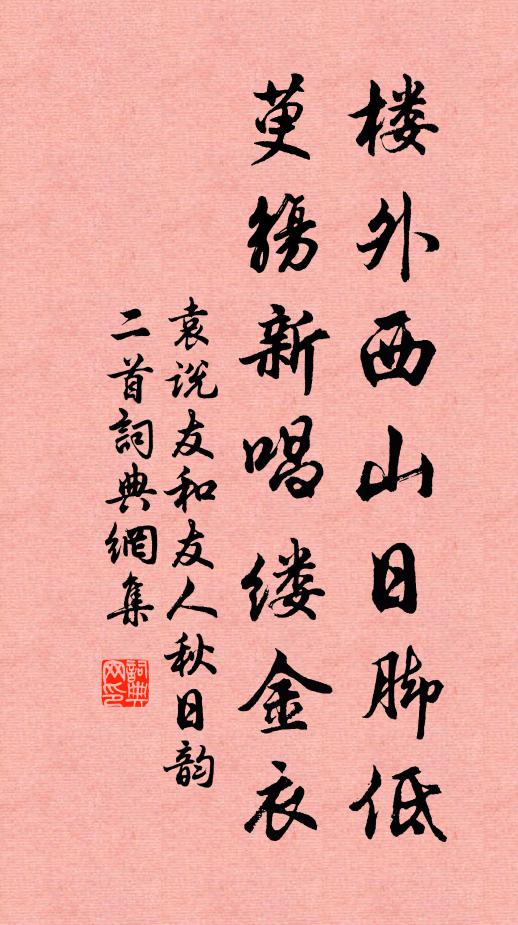 楼外西山日脚低
萸觴新唱缕金衣
袁说友和友人秋日韵
二首詞典網集
詞典
网印